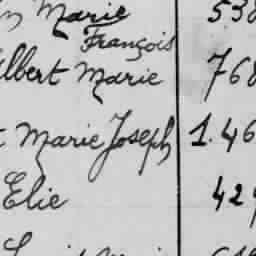 Marie 538
François
Albert Marie 768
Marie Joseph 1.46
Elie 42